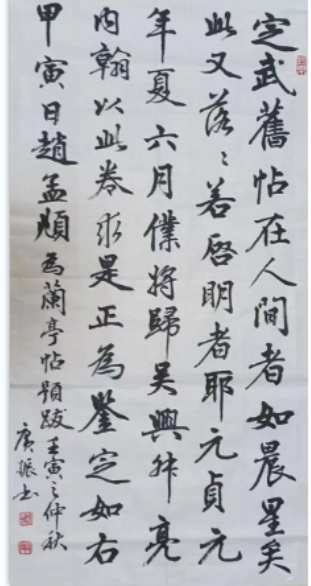 定武舊帖在人間者如晨星矣
此又落〻若启明者耶元貞元
年夏六月僕將歸吴興舛亮
内翰以此卷求是正為鑒定如右
甲寅日趙孟頫為蘭亭帖題跋壬寅之仲秋
广振书